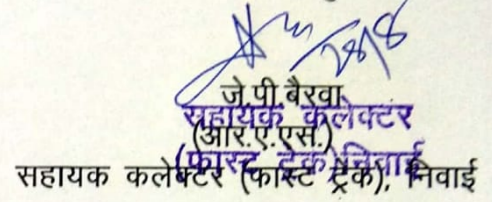 जे.पी.बैरवा
सहायक कलेक्टर
(आर.ए.एस.)
(फास्ट ट्रेक) निवाई
सहायक कलेक्टर (फास्ट ट्रेक), निवाई